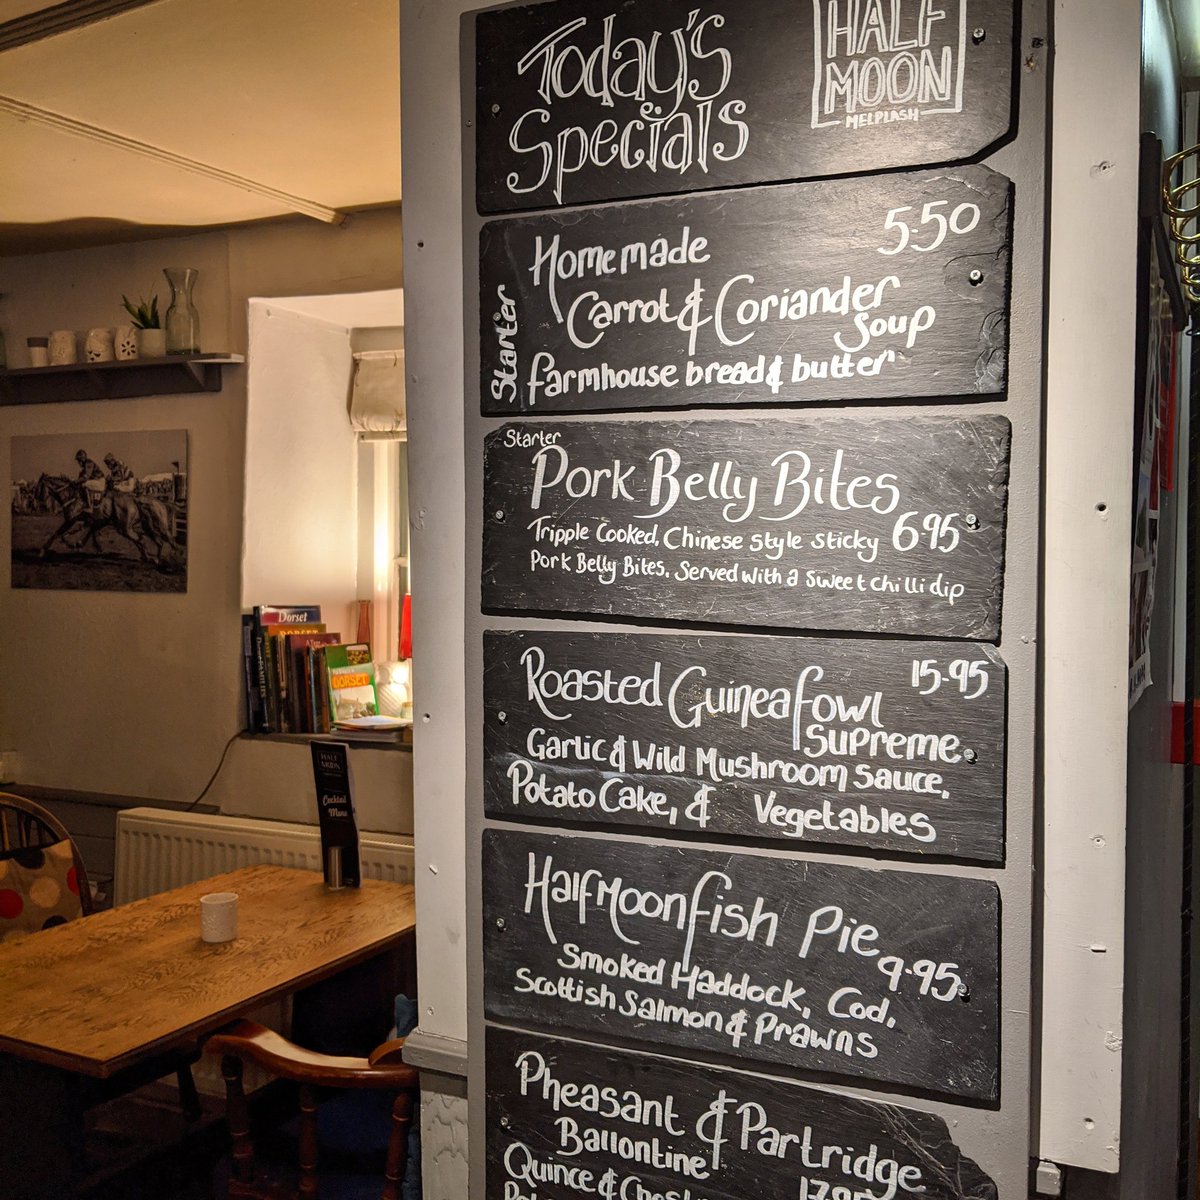 Today's
Specials
HALF
MOON
MELPLASH
Starter
Homemade 5.50
Carrot & Coriander
Soup
farmhouse bread & butter
Starter
Pork Belly Bites
Tripple Cooked, Chinese style sticky 6.95
Pork Belly Bites. Served with a sweet chilli dip
Roasted Guineafowl 15.95
Supreme
Garlic & Wild Mushroom Sauce,
Potato Cake, & Vegetables
Half Moon fish Pie
9.95
Smoked Haddock, Cod,
Scottish Salmon & Prawns
Pheasant & Partridge
Ballontine
Quince &
Dorset
DORSET
DORSET
HALF
MOON
Cocktail
Menu